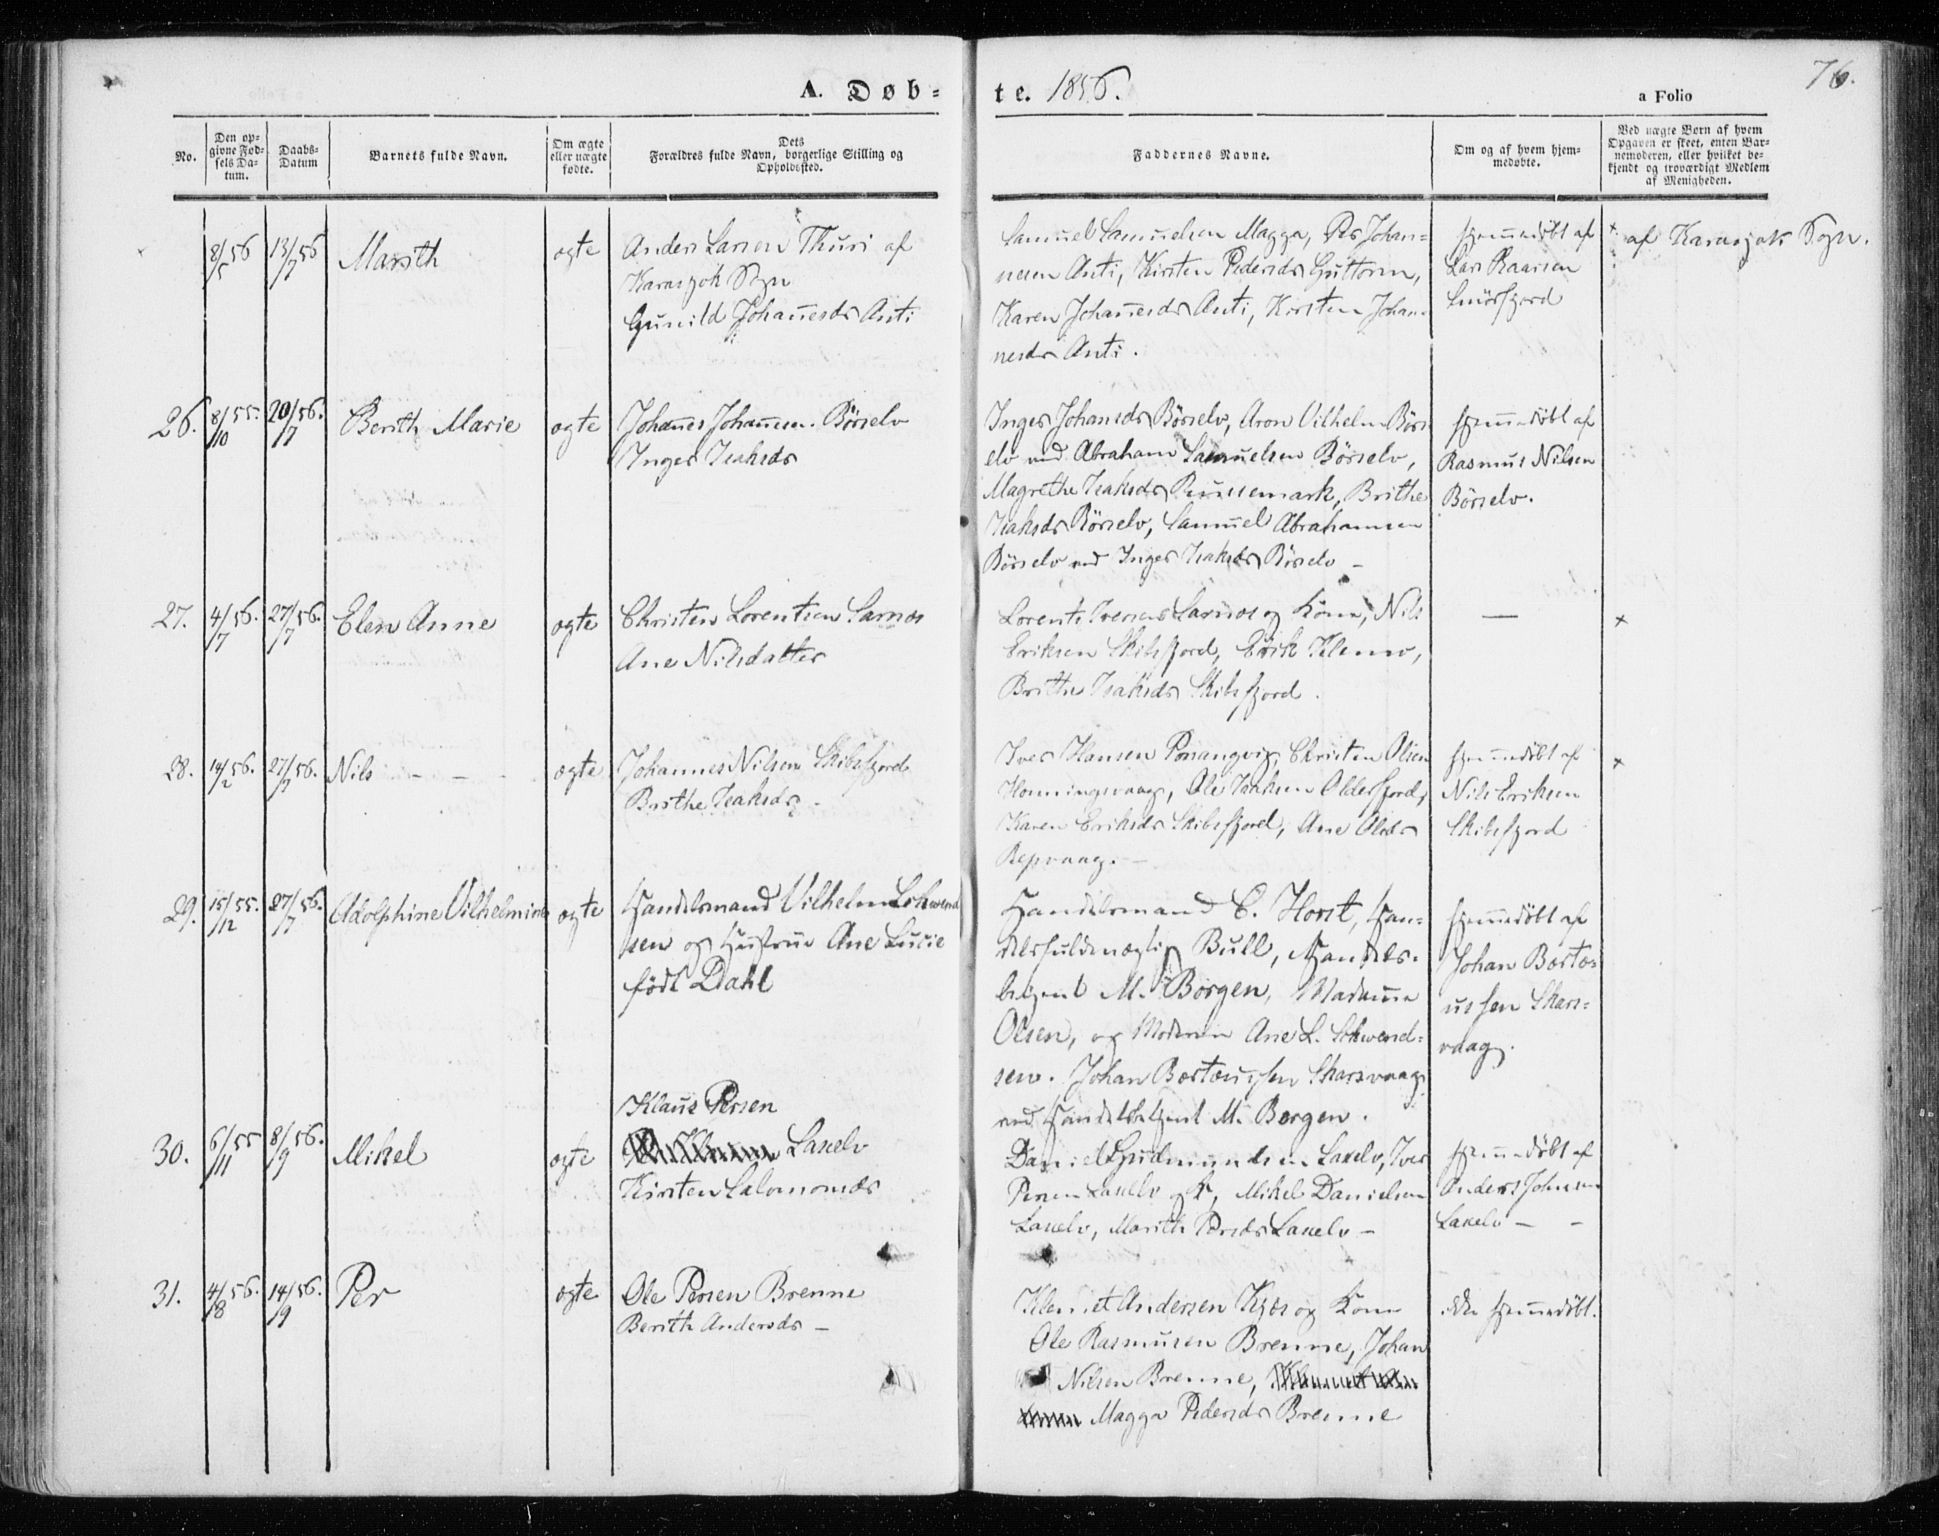 A. Døb-
te. 1856.
76.
a Folio
No.
Den op-
givne Fød-
sels Da-
tum.
Daabs-
Datum
Barnets fulde Navn.
Om ægte
eller uægte
fødte.
Dets
Forældres fulde Navn, borgerlige Stilling og
Opholdssted.
Faddernes Navne.
Om og af hvem hjem-
medøbte.
Ved uægte Børn af hvem
Opgaven er skeet, enten Bar-
nemoderen, eller hvilket be-
kjendt og troværdigt Medlem
af Menigheden.
8/5 56
13/7 56
Marith
ægte
Anders Larsen Thuri af
Karasjok Sogn
Gunild Johannesdr Anti
Samuel Samuelsen Magga, Per Johan-
nesen Anti, Kirsten Pedersdr Guttorm,
Karen Johannesdr Anti, Kirsten Johan-
nesdr Anti.
hjemmedöbt af
Lars
Smörfjord
+ af Karasjok Sogn.
26.
8/10 55.
20/7 56.
Berith Marie
ægte
Johannes Johannesen Börselv
Inger Isaksdr
Inger Johansdr Börselv, Aron Vilhelm Börs
elv ved Abraham Samuelsen Börselv,
Magrethe Isaksdr Russemark, Brithe
Isaksdr Börselv, Samuel Abrahamsen
Börselv ved Inger Isaksdr Börselv –
hjemmedöbt af
Rasmus Nilsen
Börselv.
27.
4/7 56.
27/7 56.
Elen Anne
ægte
Christen Lorentsen Sarnæs
Ane Nilsdatter
Lorents Iversen Sarnæs og Kone, Nils
Eriksen Skibsfjord, Erik Klemo,
Brithe Isaksdr Skibsfjord.
—
+
28.
14/2 56.
27/7 56.
Nils – – –
ægte
Johannes Nilsen Skibsfjord
Birthe Isaksdr –
Iver Hansen Porsangvig, Christen Olsen
Honningsvaag, Ole Isaksen Oldersfjord,
Karen Eriksdr Skibsfjord, Ane Olsdr
Repvaag. –
hjemmedöbt af
Nils Eriksen
Skibsfjord
+
29.
15/12 55.
27/7 56.
Adolphine Vilhelmine
ægte
Handelsmand Vilhelm Schwend
sen og Hustrue Ane Lucie
född Dahl
Handelsmand C. Horst, Han-
delsfuldmægtig Bull, Handels-
betjent M. Borgen, Madame
Olsen, og Moderen Ane L. Schwend-
sen. Johan Bertæussen Skarsvaag
ved Handelsbetjent M. Borgen.
hjemmedöbt af
Johan Bertæ
ussen Skars-
vaag.
30.
6/11 55
8/9 56.
Mikel
ægte
Klaus Persen
Laxelv
Kirsten Salomonsdr
Daniel Gudmundsen Laxelv, Iver
Persen Laxelv og K, Mikel Danielsen
Laxelv, Marith Persdr Laxelv –
hjemmedöbt af
Anders Johnsen
Laxelv – –
31.
4/8 56.
14/9 56.
Per
ægte
Ole Persen Brenne
Berith Andersdr –
Klemet Andersen Kjæs og Kone
Ole Rasmusen Brenne, Johan
Nilsen Brenne,
Magga Pedersdr Brenne
ikke hjemmedöbt.